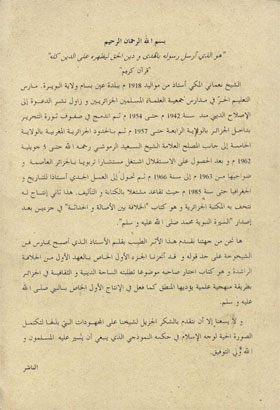 بسم الله الرحمان الرحيم
"هو الذي أرسل رسوله بالهدى و دين الحق ليظهره على الدين كله"
"قرآن كريم"
الشيخ نعماني المكي أستاذ من مواليد 1918 م ببلدة عين بسام ولاية البويرة. مارس
التعليم الحر في مدارس جمعية العلماء المسلمين الجزائريين و زاول نشر الدعوة إلى
الإصلاح الديني منذ سنة 1942 م و 1954 م ثم اندمج في صفوف ثورة التحرير
بداخل الجزائر بالولاية الرابعة حتى 1957 م ثم بالحدود الجزائرية المغربية بالولاية
الخامسة إلى جانب المصلح العلامة الشيخ السعيد الزموشي رحمه الله حتى 5 جويلية
1962 م و بعد الحصول على الاستقلال اشتغل مستشارا تربويا بالجزائر العاصمة و
ضواحيها من 1963 م إلى 1966 م ثم تحول إلى العمل الجدي أستاذا للتاريخ و
الجغرافيا حتى سنة 1985 م حيث تقاعد مشتغلا بالكتابة و التأليف. هذا ثاني إنتاج له
نتحف به المكتبة الجزائرية و هو كتاب "الخلافة بين الأصالة و الحداثة" في جزءين بعد
إصدار "السيرة النبوية محمد صلى الله عليه و سلم".
ها نحن من جهتنا نقدم هذا الأثر الطيب بقلم الأستاذ الذي أصبح يمارس فن
الشيخوخة على حد قوله و قد أنجزنا الجزء الأول الخاص بالعهد الأول من الخلافة
الراشدة و هو كتاب اختار صاحبه موضوعا تطلبته الساحة الدينية و الثقافية في الجزائر
بطريقة منهجية علمية يؤديها المنطق كما فعل في الإنتاج الأول الخاص بالنبي صلى الله
عليه و سلم.
و لا يسعنا إلا أن نتقدم بالشكر الجزيل لشيخنا على المجهودات التي بذلها لتكتمل
الصورة الحية لوجه الإسلام في حكمه النموذجي الذي ينبغي أن يسير عليه المسلمون و
الله ولي التوفيق.
الناشر